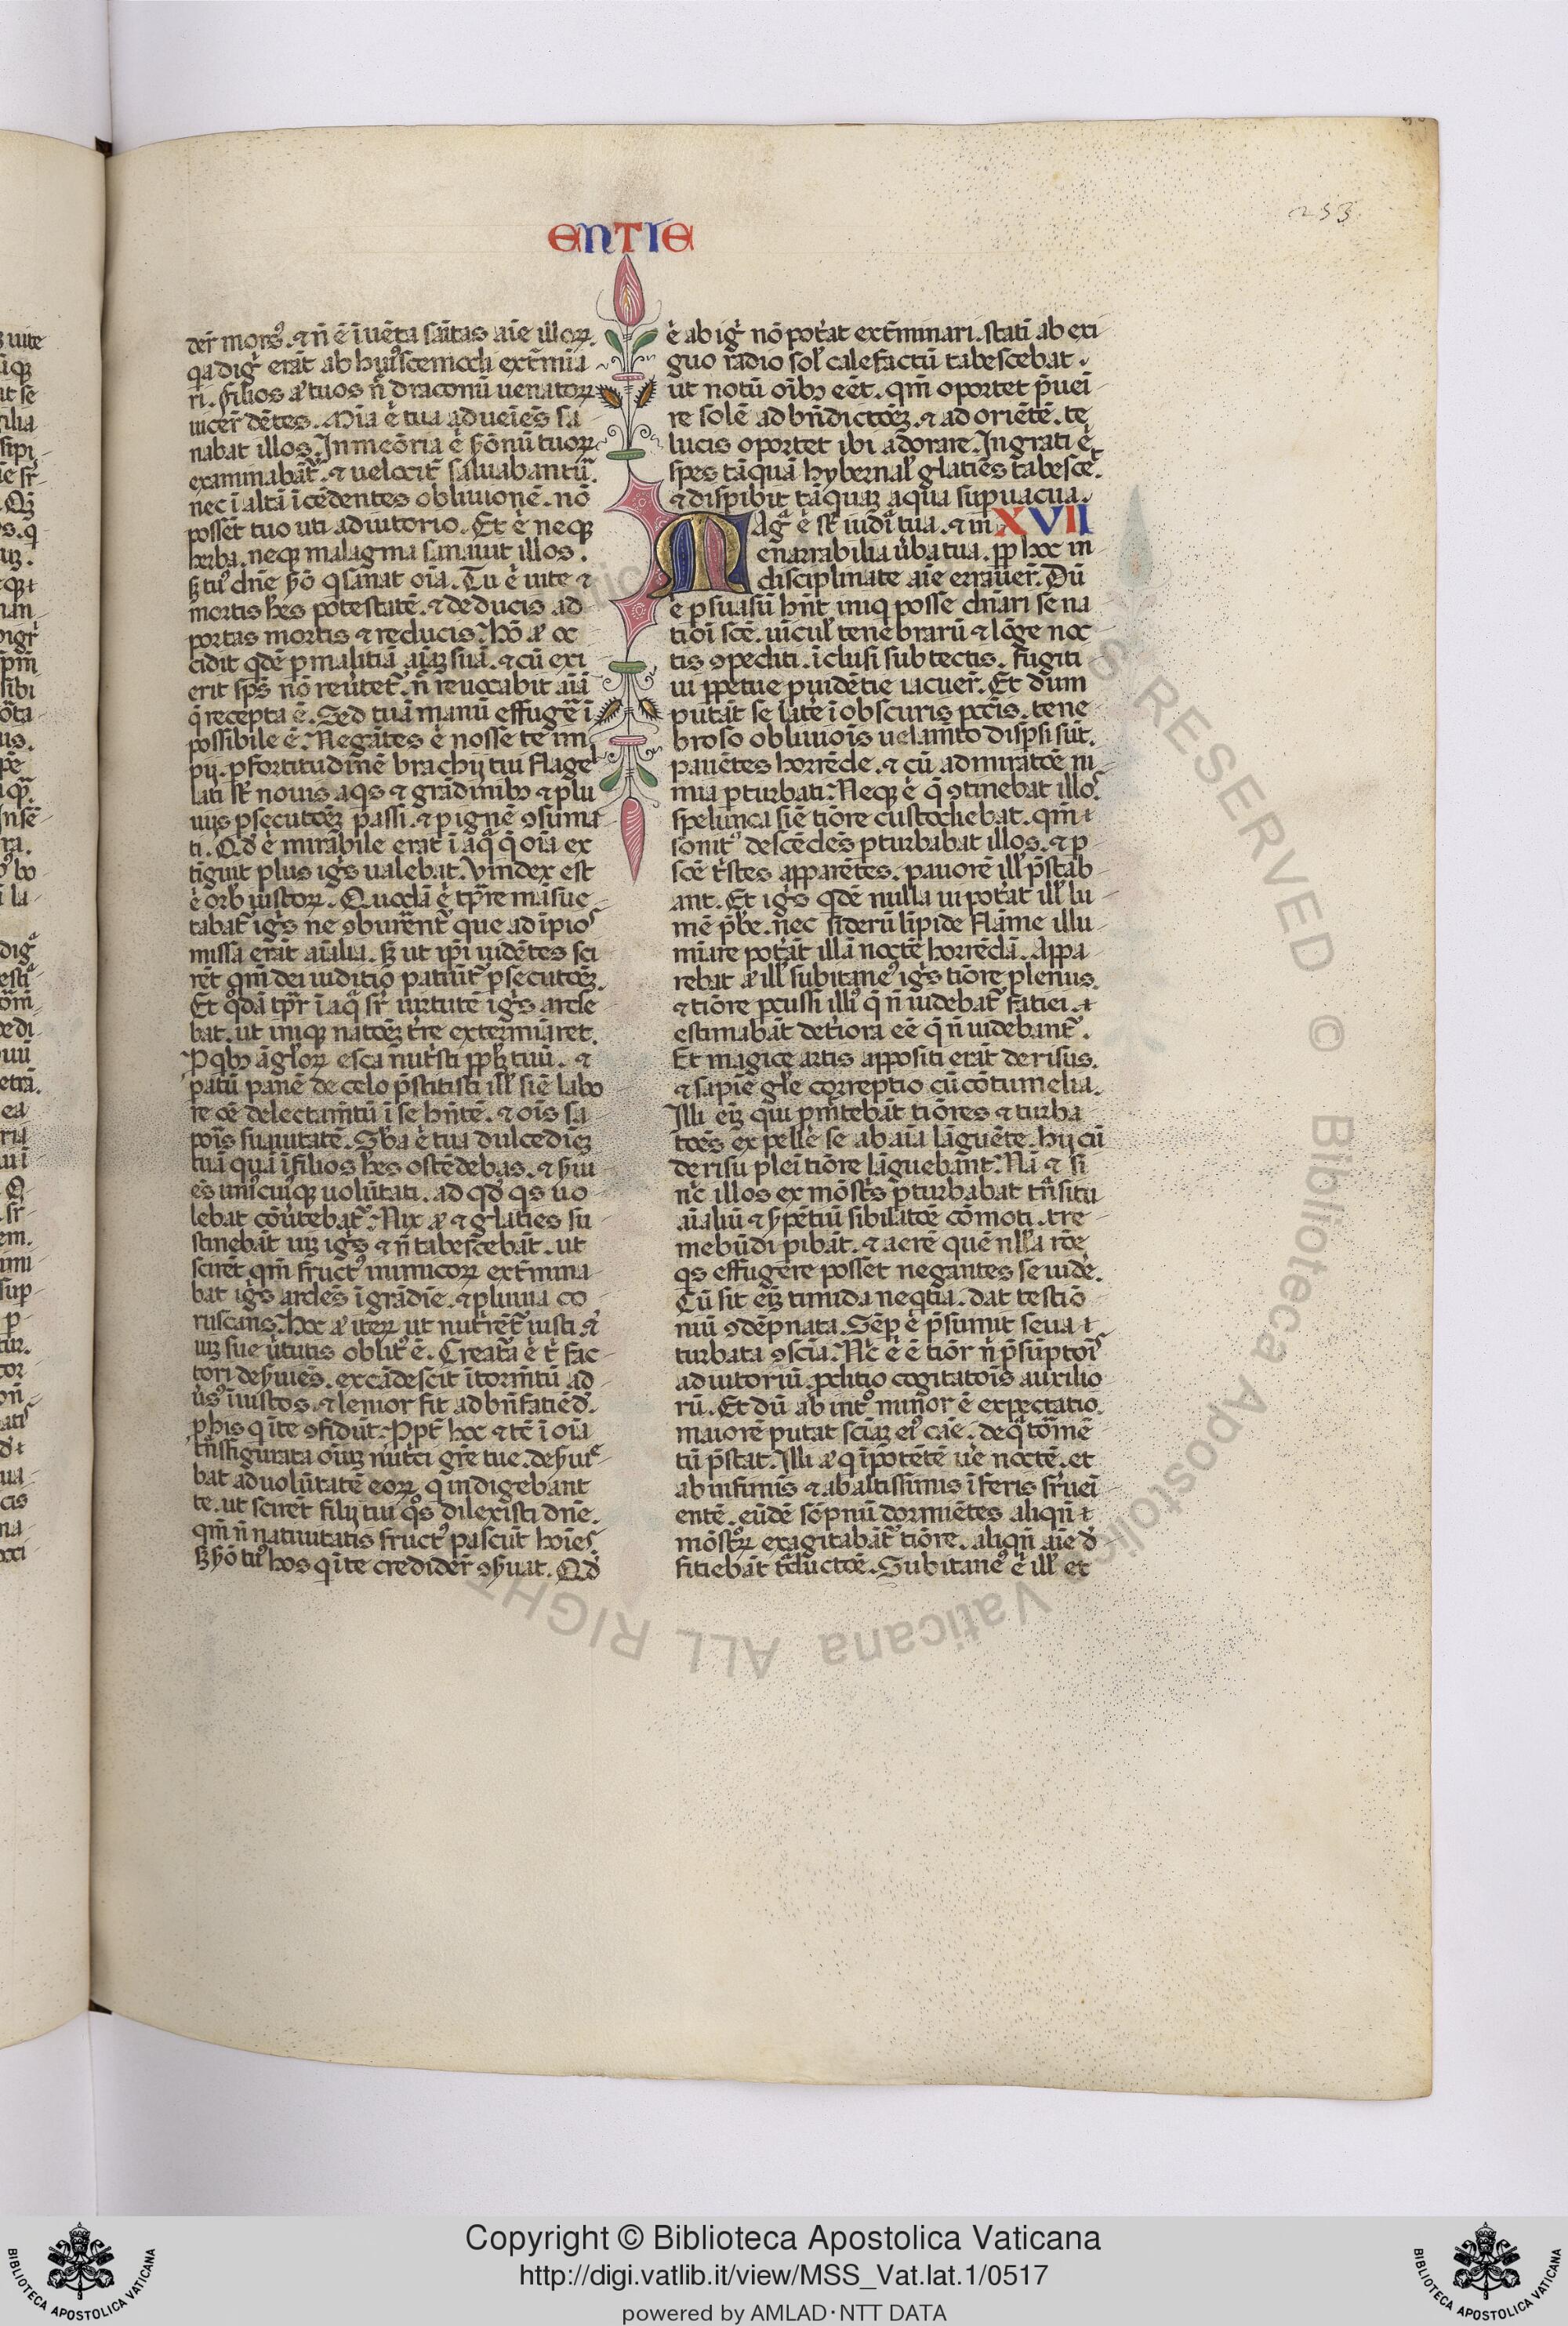 ENTIE
253
der̄ mors⁹. ⁊ n̄ ē ī uēta sāitas aīe illoꝝ.
qa dig̾ erāt ab hui⁹scemodi ext̄mīa
ri. filios aͧtuos n̄ draconū uenatoꝝ
uicer̄ dētes. Mīa ē̓ tua adueīēs sa
nabat illos. In meōria ē̓ ẜōnū tuoꝝ
examinabāt̄. ⁊ uelocit̄ saluabantū.
nec ī altā īcēdentes obliuionē. nō
possēt tuo uti adiutorio. Et ē̓ neqꝫ
herba. neqꝫ malagma sanauit illos.
ꝫ tu⁹ dn̄e ẜō q sanat oīa. Tu ē̓ uite ⁊
mortis h̄es potestatē. ⁊ deducis ad
portas mortis ⁊ reducis. Hō aͧ oc
cidit qdē ꝑ malitiā aīaꝫ suā. ⁊ cū exi
erit sp̄s nō reu̓tet̄. n̄ reuocabit aīā
q̄ recepta ē. Sed tuā manū effugē̓ ī
possibile ē. Negātes ē̓ nosse te im
pij. ꝑ fortitudīnē brachij tui flagel
lati st̄ nouis aqs ⁊ grādinibꝫ ⁊ plu
uijs ꝑsecutōēꝫ passi. ⁊ ꝑ ignē ꝯsūmat
ti. Qd̓ ē̓ mirābile erat ī aq̄ q̄ oīa ex
tīguit plus ig̓s ualebat. Vindex est
ē̓ orb̓ iustoꝝ. Quodā ē̓ tp̄re māsue
tabat̄ ig̓s ne ꝯburēnt̄ que ad īpios
missa erāt aīalia. ꝫ ut ip̄i uidētes sci
rēt qm̄ dei iuditio patiūt̄ ꝑsecutōēꝫ.
Et q̓dā tp̄r ī aq̄ sr̄ uirtutē ig̓s arde
bat. ut iniqꝫ natōēꝫ t̓re extermīaret.
P qbꝫ āgl̓oꝝ esca nut̓sti pp̄l̓ꝫ tuū. ⁊
patū panē de celo p̄stitisti ill̓ siē labo
re oē delectam̄tū ī se hn̄tē. ⁊ oīs sa
poīs suauitatē. Sb̓a ē̓ tua dulcedīeꝫ
tuā quā ī filios h̄es ostēdebas. ⁊ ẜui
ēs uni⁹cui⁹qꝫ uolūtati. ad qd̓ qs uo
lebat cōu̓tebat̄. Nix aͧ ⁊ glaties su
stinebāt uiꝫ ig̓s ⁊ n̄ tabescebāt. ut
scirēt qm̄ fruct⁹ inimicoꝝ ext̄mina
bat ig̓s ardēs ī grādīe. ⁊ pluuia co
ruscans. Hoc aͧ iteꝝ ut nut̓rēt̄ iusti. ēt
uiꝫ sue u̓tutis oblit⁹ ē. Creat̄a ē̓ t̓ fac
tori deẜuiēs. excādescit ī torm̄tū ad
u̓s⁹ īiustos. ⁊ lenior fit ad bn̄fatiēd̓.
ꝑ his q īte ꝯfidūt. Ppt̓ hoc ⁊ tē ī oīa
tn̄sfigurata oīuꝫ nut̓ci gr̄e tue. deẜuie
bat ad uolūtatē eoꝝ q indigebant
te. ut scirēt filij tui q̓s dilexisti dn̄e.
qm̄ n̄ natiuitatis fruct⁹ pascūt hoīes.
ꝫ ẜō tu⁹ hos q īte credider̄ ꝯẜuat. Qd̓
ē̓ ab ig̓ nō pot̓at ext̄minari. stati ab exi
guo radio sol̓ calefactū tabescebat.
ut notū oībꝫ eēt. qm̄ oportet p̄ueī
re solē ad bn̄dictōēꝫ. ⁊ ad oriētē. te
lucis oportet ibi adorare. Ingrati ē̓
spes tāquā hybernal̓ glatiēs tabescet.
⁊ dispibit tāquaꝫ aqua supuacua.
Mag̾ ē̓ st̄ iudi̓a tua. ⁊ in XVII
enarrabilia u̓ba tua. pp̄ hoc in
disciplinate aīe erraūer̄. Dū
ē̓ ꝑsuasū hn̄t iniq posse dn̄ari se na
tioī scē. uīcul̓ tenebrarū ⁊ lōge noc
tis ꝯpediti. īclusi sub tectis. fugiti
ui ppetue puidētie iacuer̄. Et dum
putāt se latē̓ ī obscuris pcc̄is. tene
broso obliuiōis uelamīto disp̄si sūt.
pauētes horrēde. ⁊ cū admiratōē ni
mia ꝑturbati. Neqꝫ ē̓ q̄ ꝯtinebat illos
spelunca siē tiōre custodiebat. qm̄ ⁊
sonit⁹ descēdēs ꝑturbabat illos. ⁊ ꝑ
scē t̓stes apparētes. pauorē ill̓ p̄stab
ant. Et ig̓s qdē nulla ui pot̓at ill̓ lu
mē p̄be̓. nec siderū līpide flāme illu
mīare pot̓āt illā noctē horrēdā. Appa
rebat aͧ ill̓ subitane⁹ ig̓s tiōre plenus.
⁊ tiōre ꝑcussi illi⁹ q̄ n̄ uidebat̄ fatiei. ⁊
estimabāt det̓iora eē q̄ n̄ uidebant̄.
Et magice artis appositi erāt derisus.
⁊ sapiē gl̓e correptio cū cōtumelia.
Illi eīꝫ qui ꝑm̄tebāt tiōres ⁊ turba
tōēs expellē̓ se ab aīa lāguēte. hij cū
derisu pleī tiōre lāguebānt. Nā ⁊ si
n̓c illos ex mōst̓s ꝑturbabat tn̄situ
aīaliū ⁊ ẜpētiū sibilatōē cōmoti. tre
mebūdi pibāt. ⁊ aerē quē nll̓a rōe
qs effugere possēt negantes se uidē̓.
Cū sit eīꝫ timida neqtia. dat testiō
niū ꝯdēpnata. Sēp ē̓ p̄sumit seua ⁊
turbata ꝯscīa. N̓c ē̓ ē tiōr n̄ p̄sūptoīs
adiutoriū. pditio cogitatoīs auxilio
rū. Et dū ab int⁹ minor ē expectatio.
maiorē putat sciaꝫ ei⁹ cāe. de q̄ tōm̄ē
tū p̄stat. Illi aͧ q īpotētē ue̓ noctē. et
ab infimis ⁊ ab altissimis īferis sr̄ueī
entē. eūdē sōpnū dormiētes aliqn̄ ⁊
mōst̓oꝝ exagitabāt̄ tiōre. aliqn̄ aīe d̓
fitiebāt t̄ductōē. Subitane⁹ ē̓ ill̓ et
Copyright © Biblioteca Apostolica Vaticana
http://digi.vatlib.it/view/MSS_Vat.lat.1/0517
powered by AMLAD·NTT DATA